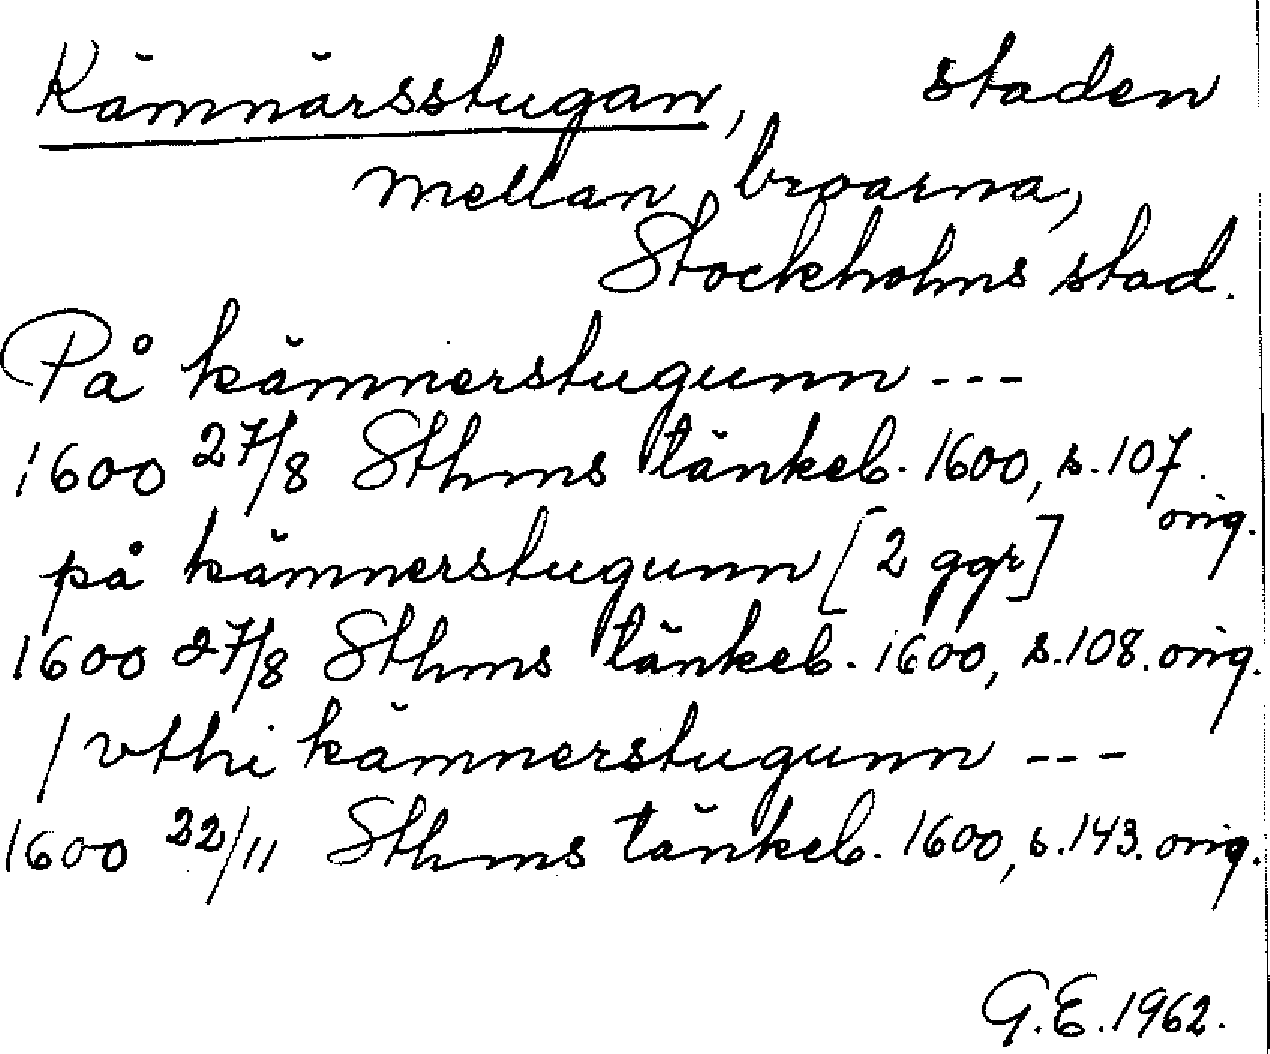 Kämnärsstugan, staden
mellan broarna,
Stockholms stad.
På kämnerstugunn ---
1600 27/8 Sthms tänkeb. 1600, s. 107.
orig.
på kämnerstugunn [2 ggr]
1600 27/8 Sthms tänkeb. 1600, s. 108. orig.
/ vthi kämnerstugunn ---
1600 22/11 Sthms tänkeb. 1600, s. 143. orig.
G.E. 1962.